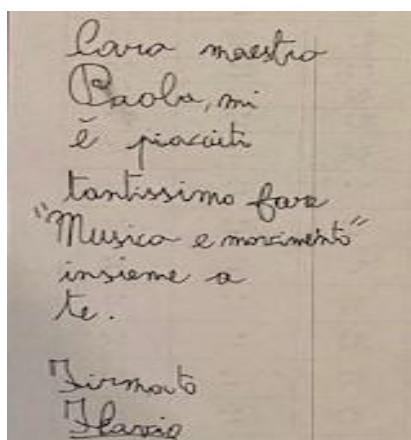 Cara maestra
Paola, mi
è piaciuto
tantissimo fare
"Musica e movimento"
insieme a
te.
Firmato
Flavio